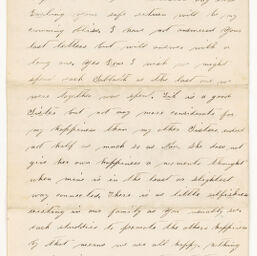 your safe return will be my
crowning bliss. I have not answered your
last letters but will answer with a
long one. Yes Dear I wish we might
spend each Sabbath as the last one we
were together was spent. Lib is a good
Sister but not any more considerate for
my happiness than my other Sisters, indeed
not half as much so as Nan. She does not
give her own happiness a moments thought
when mine is in the least or slightest
way connected. There is as little selfishness
existing in our family as you usually see
each studies to promote the others happiness
by that means we are all happy. nothing